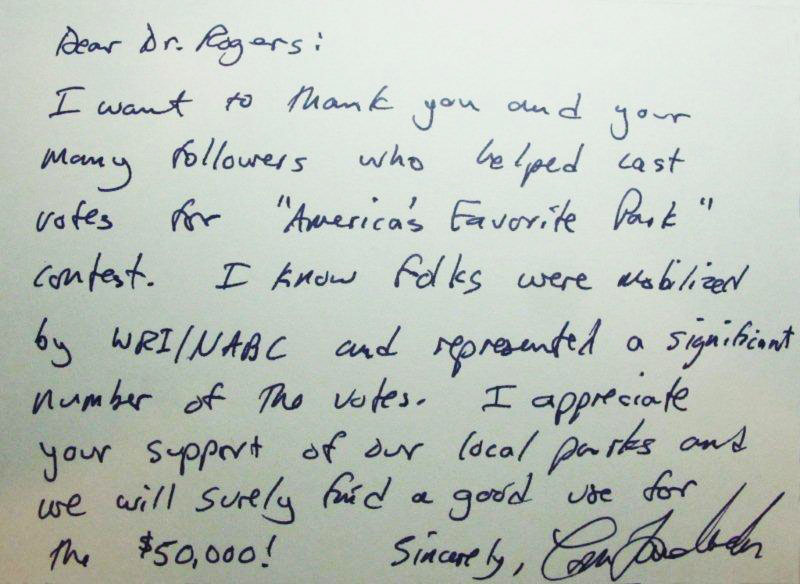 Dear Dr. Rogers:
I want to thank you and your
many followers who helped cast
votes for "America's Favorite Park"
contest. I know folks were mobilized
by WRI/NABC and represented a significant
number of the votes. I appreciate
your support of our local parks and
we will surely find a good use for
the $50,000! Sincerely,